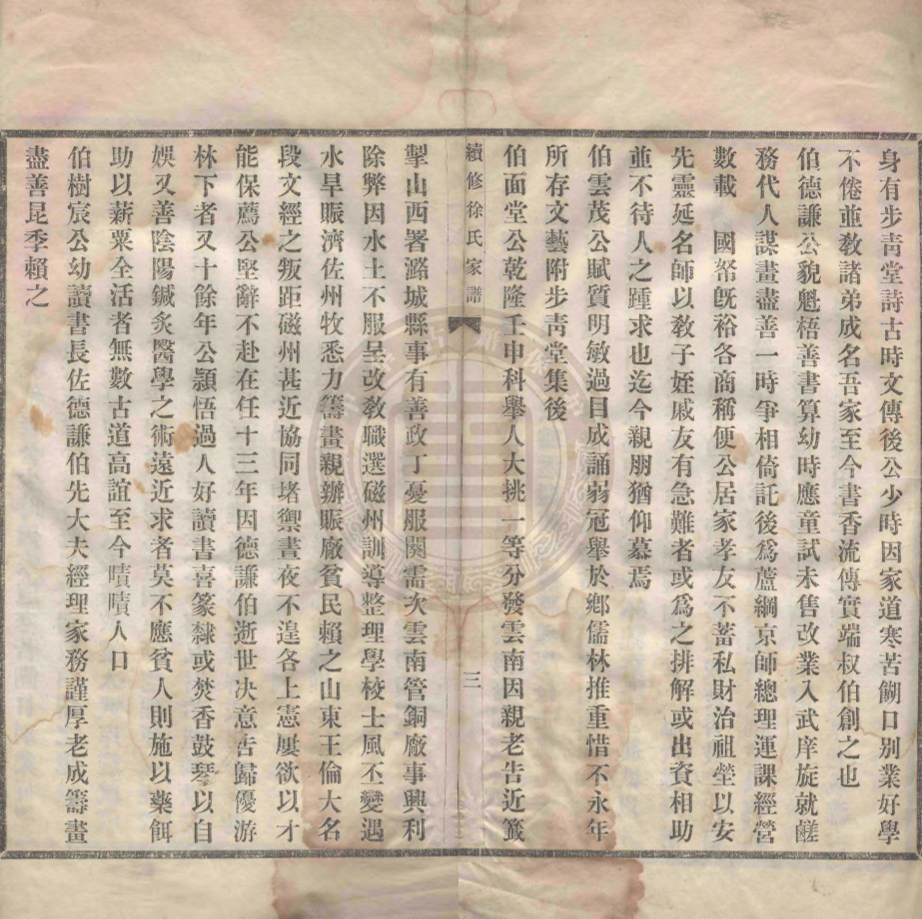 身有步青堂詩古時文傳後公少時因家道寒苦餬口別業好學
不倦並敎諸弟成名吾家至今書香流傳實端叔伯創之也
伯德謙公貌魁梧善書算幼時應童試未售改業入武庠旋就鹺
務代人謀畫盡善一時爭相倚託後爲蘆綱京師總理運課經營
數載　國帑旣裕各商稱便公居家孝友不蓄私財治祖塋以安
先靈延名師以敎子姪戚友有急難者或爲之排解或出資相助
並不待人之踵求也迄今親朋猶仰慕焉
伯雲茂公賦質明敏過目成誦弱冠舉於鄉儒林推重惜不永年
所存文藝附步靑堂集後
伯面堂公乾隆壬申科舉人大挑一等分發雲南因親老告近籤
續修徐氏家譜
三
掣山西署潞城縣事有善政丁憂服闋需次雲南管銅廠事興利
除弊因水土不服呈改敎職選磁州訓導整理學校士風丕變遇
水旱賑濟佐州牧悉力籌畫親辦賑廠貧民賴之山東王倫大名
段文經之叛距磁州甚近協同堵禦晝夜不遑各上憲屢欲以才
能保薦公堅辭不赴在任十三年因德謙伯逝世决意告歸優游
林下者又十餘年公穎悟過人好讀書喜篆隸或焚香鼓琴以自
娛又善陰陽鍼炙醫學之術遠近求者莫不應貧人則施以藥餌
助以薪粟全活者無數古道高誼至今嘖嘖人口
伯樹宸公幼讀書長佐德謙伯先大夫經理家務謹厚老成籌畫
盡善昆季賴之